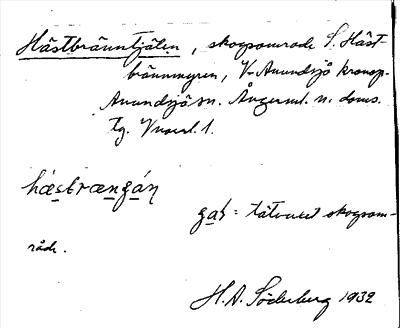 Hästbränntjälen, skogsområde S. Häst-
brännmyren, V. Anundsjö kronop.
Anundsjö sn. Ångerml. n. doms.
tg. Vnorrl. l.
hæsbrængáɳ
gaɳ = tätvuxet skogsom-
råde.
H. A. Söderberg 1932